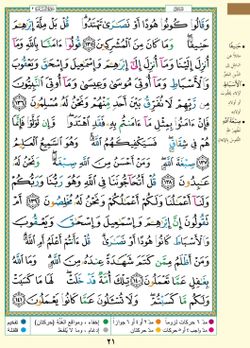 وَقَالُوا۟ كُونُوا۟ هُودًا أَوْ نَصَٰرَىٰ تَهْتَدُوا۟ ۗ قُلْ بَلْ مِلَّةَ إِبْرَٰهِـۧمَ
حَنِيفًا ۖ وَمَا كَانَ مِنَ ٱلْمُشْرِكِينَ ١٣٥ قُولُوٓا۟ ءَامَنَّا بِٱللَّهِ وَمَآ
أُنزِلَ إِلَيْنَا وَمَآ أُنزِلَ إِلَىٰٓ إِبْرَٰهِـۧمَ وَإِسْمَٰعِيلَ وَإِسْحَٰقَ وَيَعْقُوبَ
وَٱلْأَسْبَاطِ وَمَآ أُوتِىَ مُوسَىٰ وَعِيسَىٰ وَمَآ أُوتِىَ ٱلنَّبِيُّونَ
مِن رَّبِّهِمْ لَا نُفَرِّقُ بَيْنَ أَحَدٍ مِّنْهُمْ وَنَحْنُ لَهُۥ مُسْلِمُونَ ١٣٦
فَإِنْ ءَامَنُوا۟ بِمِثْلِ مَآ ءَامَنتُم بِهِۦ فَقَدِ ٱهْتَدَوا۟ ۖ وَّإِن تَوَلَّوْا۟ فَإِنَّمَا
هُمْ فِى شِقَاقٍ ۖ فَسَيَكْفِيكَهُمُ ٱللَّهُ ۚ وَهُوَ ٱلسَّمِيعُ ٱلْعَلِيمُ ١٣٧
صِبْغَةَ ٱللَّهِ ۖ وَمَنْ أَحْسَنُ مِنَ ٱللَّهِ صِبْغَةً ۖ وَنَحْنُ لَهُۥ
عَٰبِدُونَ ١٣٨ قُلْ أَتُحَآجُّونَنَا فِى ٱللَّهِ وَهُوَ رَبُّنَا وَرَبُّكُمْ
وَلَنَآ أَعْمَٰلُنَا وَلَكُمْ أَعْمَٰلُكُمْ وَنَحْنُ لَهُۥ مُخْلِصُونَ ١٣٩ أَمْ
تَقُولُونَ إِنَّ إِبْرَٰهِـۧمَ وَإِسْمَٰعِيلَ وَإِسْحَٰقَ وَيَعْقُوبَ
وَٱلْأَسْبَاطَ كَانُوا۟ هُودًا أَوْ نَصَٰرَىٰ ۗ قُلْ ءَأَنتُمْ أَعْلَمُ أَمِ ٱللَّهُ ۗ
وَمَنْ أَظْلَمُ مِمَّن كَتَمَ شَهَٰدَةً عِندَهُۥ مِنَ ٱللَّهِ ۗ وَمَا ٱللَّهُ
بِغَٰفِلٍ عَمَّا تَعْمَلُونَ ١٤٠ تِلْكَ أُمَّةٌ قَدْ خَلَتْ ۖ لَهَا مَا كَسَبَتْ
وَلَكُم مَّا كَسَبْتُمْ ۖ وَلَا تُسْـَٔلُونَ عَمَّا كَانُوا۟ يَعْمَلُونَ ١٤١
٢١